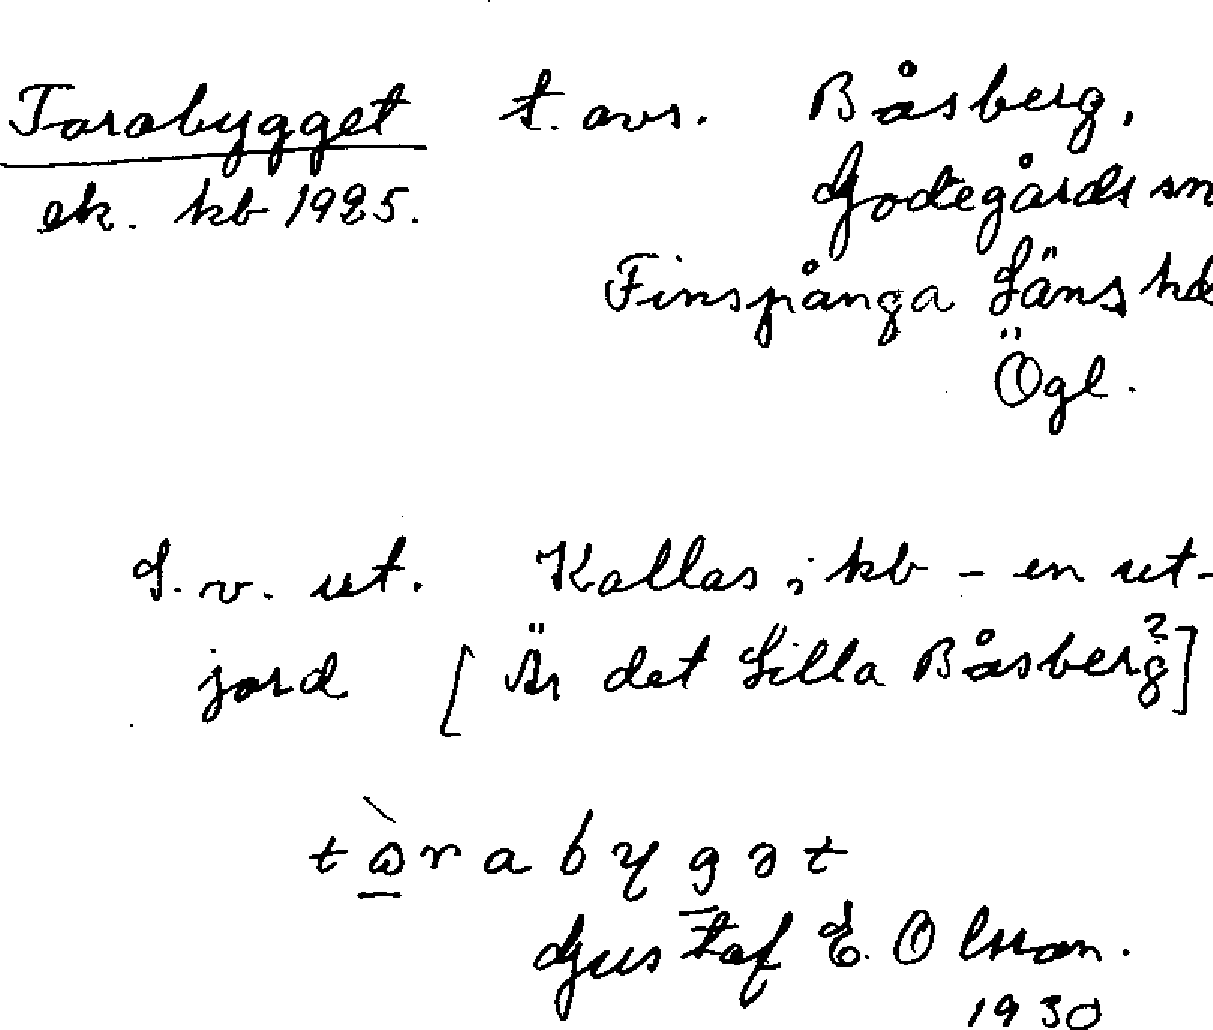 Torabygget t. avs. Båsberg,
ek. kb 1925. Godegårds sn
Finspånga läns hd
Ögl.
S. v. ut. Kallas i kb – en ut-
jord [Är det Lilla Båsberg?]
tὼrabygət
Gustaf E. Olsson.
1930